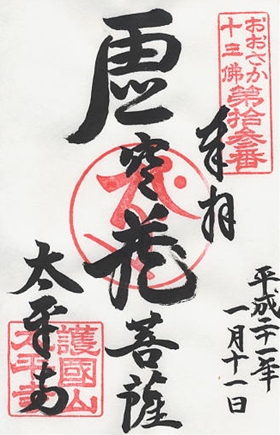 おおさか
十三佛
第拾参番
奉拝
平成二十一年
一月十一日
虚空蔵菩薩
太平寺
護國山
太平寺